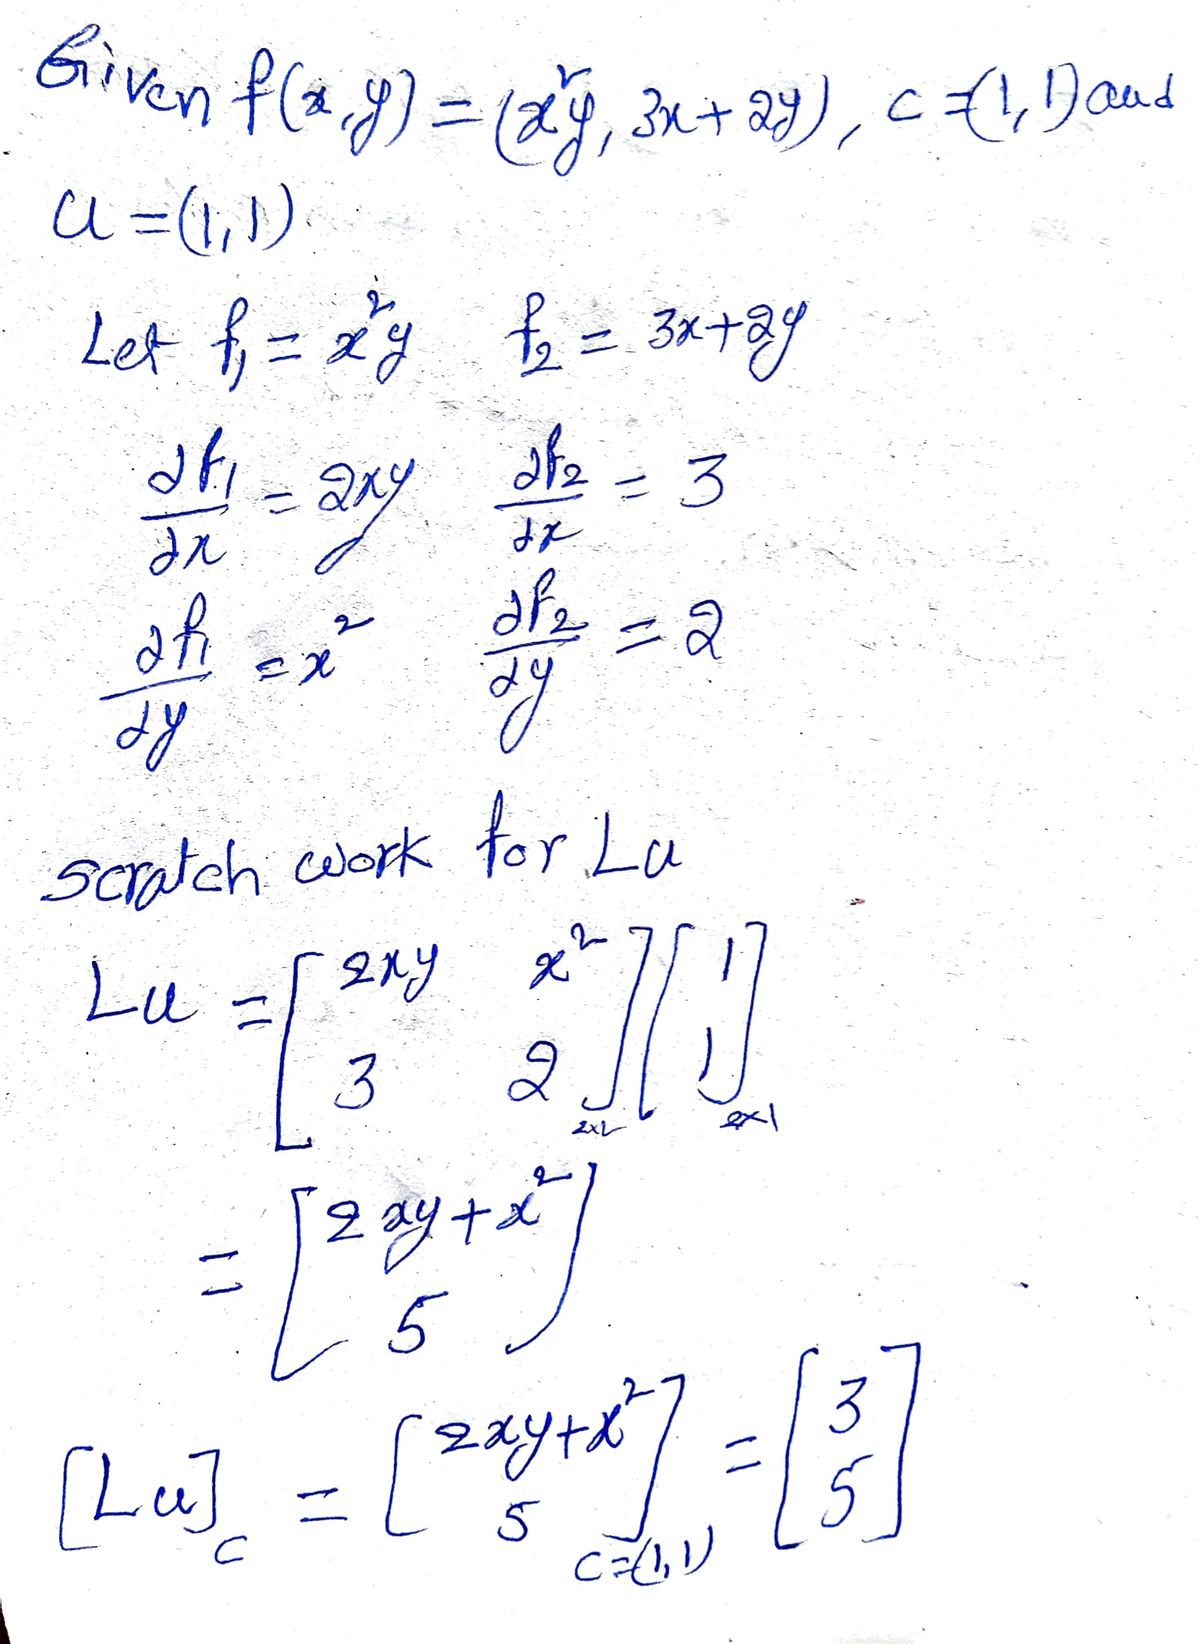 Given f(x,y) = (x²y, 3x+2y), c=(1,1) and
u = (1,1)
Let f₁ = x²y f₂ = 3x+2y
∂f₁/∂x = 2xy ∂f₂/∂x = 3
∂f₁/∂y = x² ∂f₂/∂y = 2
Scratch work for Lu
Lu = [2xy x² ; 3 2]₂ₓ₂ [1 ; 1]₂ₓ₁
= [2xy+x² ; 5]
[Lu]c = [2xy+x² ; 5] c=(1,1) = [3 ; 5]